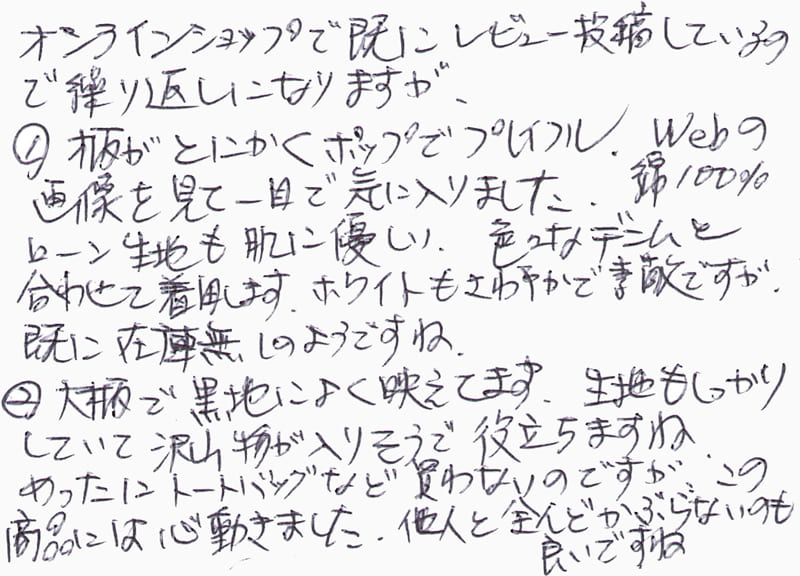 オンラインショップで既にレビュー投稿しているの
で繰り返しになりますが、
① 柄がとにかくポップでプレイフル. Webの
画像を見て一目で気に入りました. 綿100%
ローン生地も肌に優しい. 色々なデニムと
合わせて着用します. ホワイトもさわやかで素敵ですが.
既に在庫無しのようですね.
② 大柄で黒地によく映えてます. 生地もしっかり
していて沢山物が入りそうで役立ちますね
めったにトートバッグなど買わないのですが、この
商品には心動きました. 他人と全んどかぶらないのも
良いですね